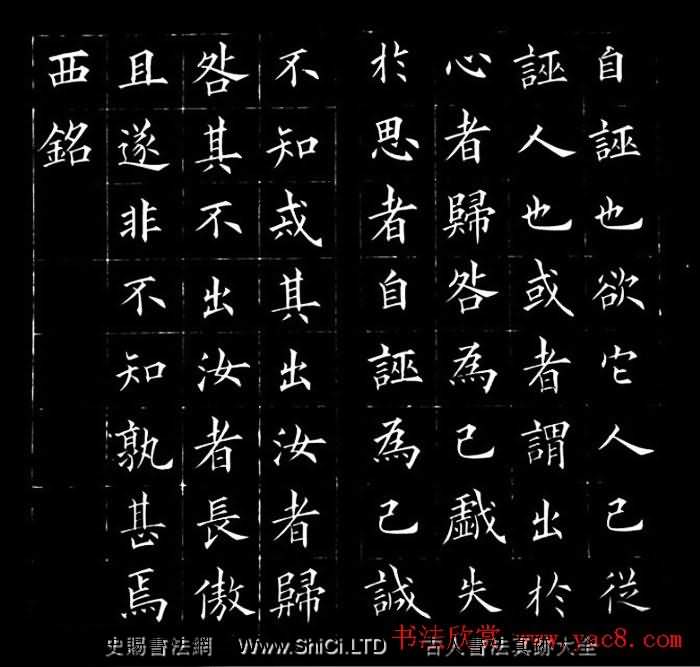 自誣也欲它人己從
誣人也或者謂出於
心者歸咎為己戲失
於思者自誣為己誠
不知戒其出汝者歸
咎其不出汝者長傲
且遂非不知孰甚焉
西銘
史賜書法網 Www.ShiCi.LTD 古人書法真跡大全
书法欣赏 www.yac8.com